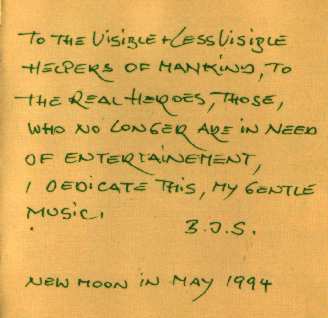 TO THE VISIBLE + LESS VISIBLE
HELPERS OF MANKIND, TO
THE REAL HEROES, THOSE,
WHO NO LONGER ARE IN NEED
OF ENTERTAINEMENT,
I DEDICATE THIS, MY GENTLE
MUSIC.
B.J.S.
NEW MOON IN MAY 1994